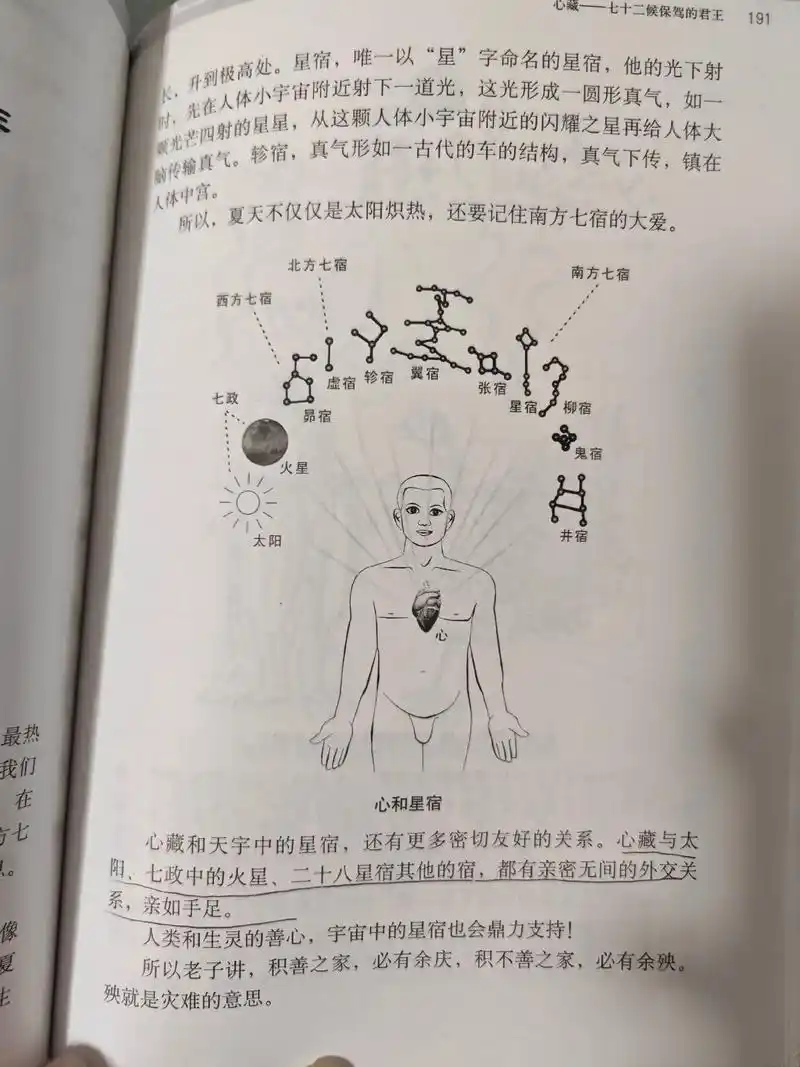 心藏——七十二候保驾的君王 191
长，升到极高处。星宿，唯一以“星”字命名的星宿，他的光下射
时，先在人体小宇宙附近射下一道光，这光形成一圆形真气，如一
颗光芒四射的星星，从这颗人体小宇宙附近的闪耀之星再给人体大
脑传输真气。轸宿，真气形如一古代的车的结构，真气下传，镇在
人体中宫。
所以，夏天不仅仅是太阳炽热，还要记住南方七宿的大爱。
北方七宿
南方七宿
西方七宿
虚宿
轸宿
翼宿
张宿
七政
昴宿
星宿
柳宿
火星
鬼宿
太阳
井宿
心
心和星宿
心藏和天宇中的星宿，还有更多密切友好的关系。心藏与太
阳、七政中的火星、二十八星宿其他的宿，都有亲密无间的外交关
系，亲如手足。
人类和生灵的善心，宇宙中的星宿也会鼎力支持！
所以老子讲，积善之家，必有余庆，积不善之家，必有余殃。
殃就是灾难的意思。
最热
我们
在
方七
像
夏
生